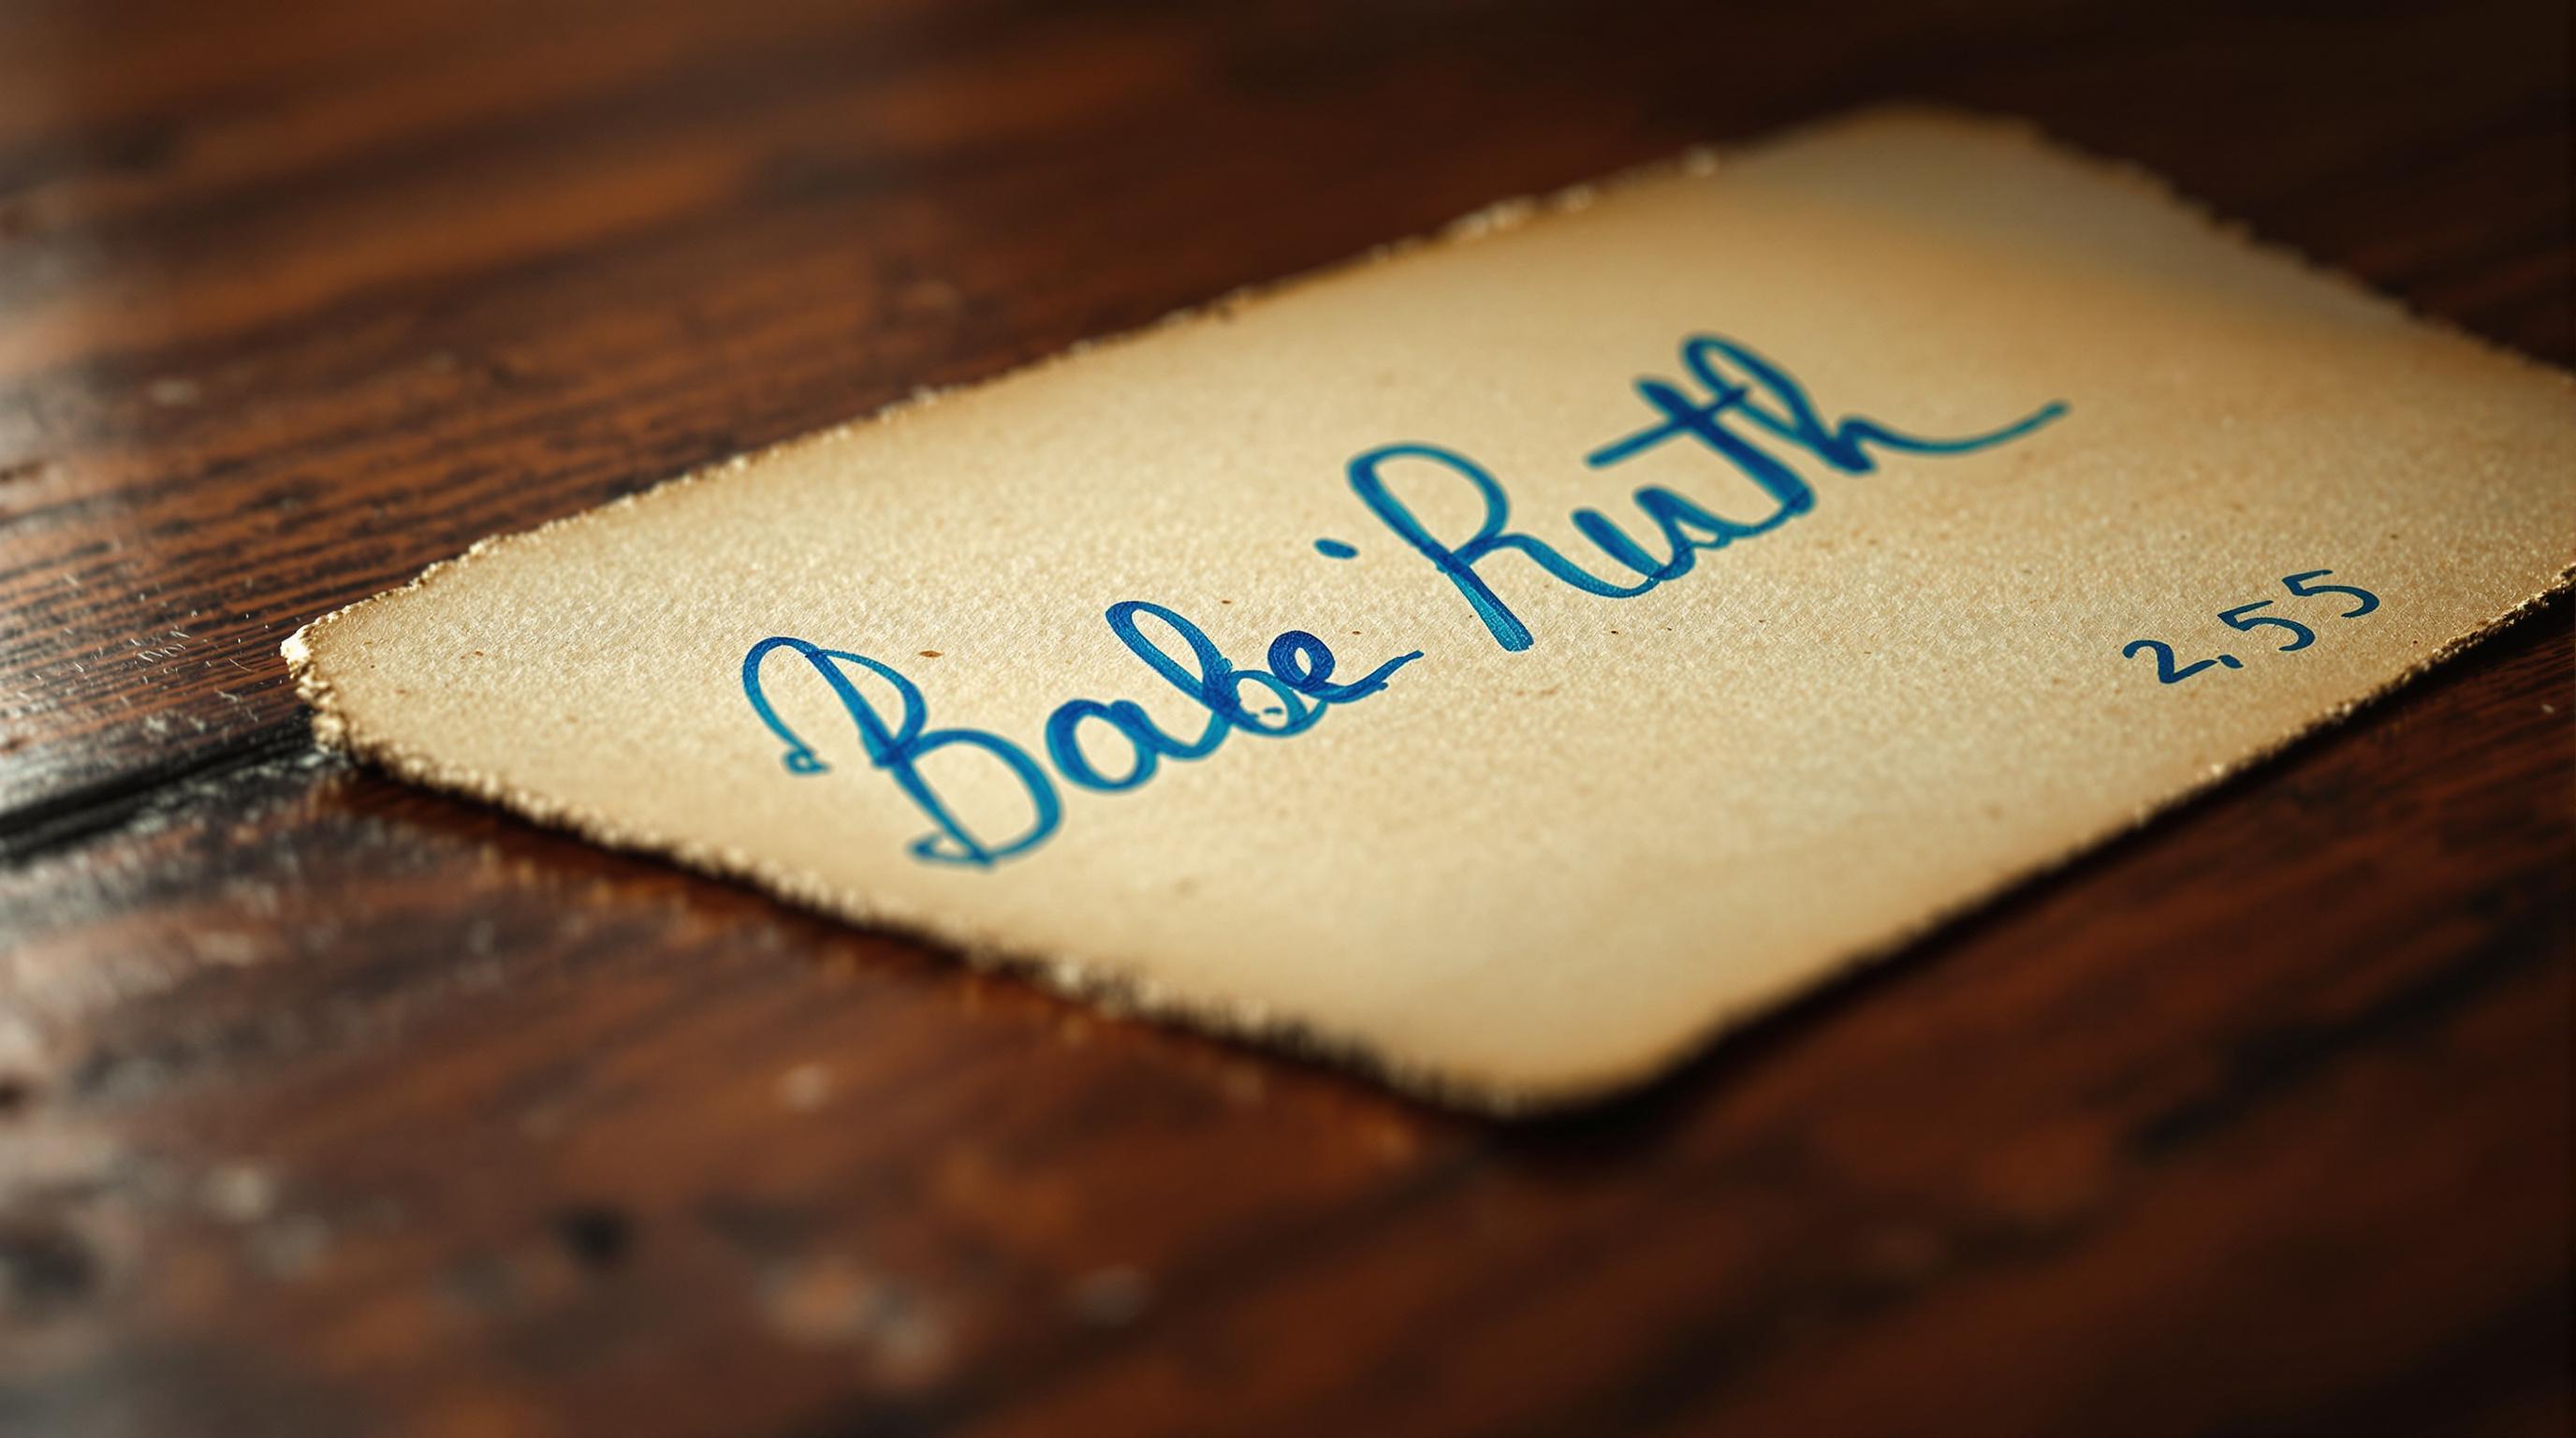 Babe Ruth
2,55